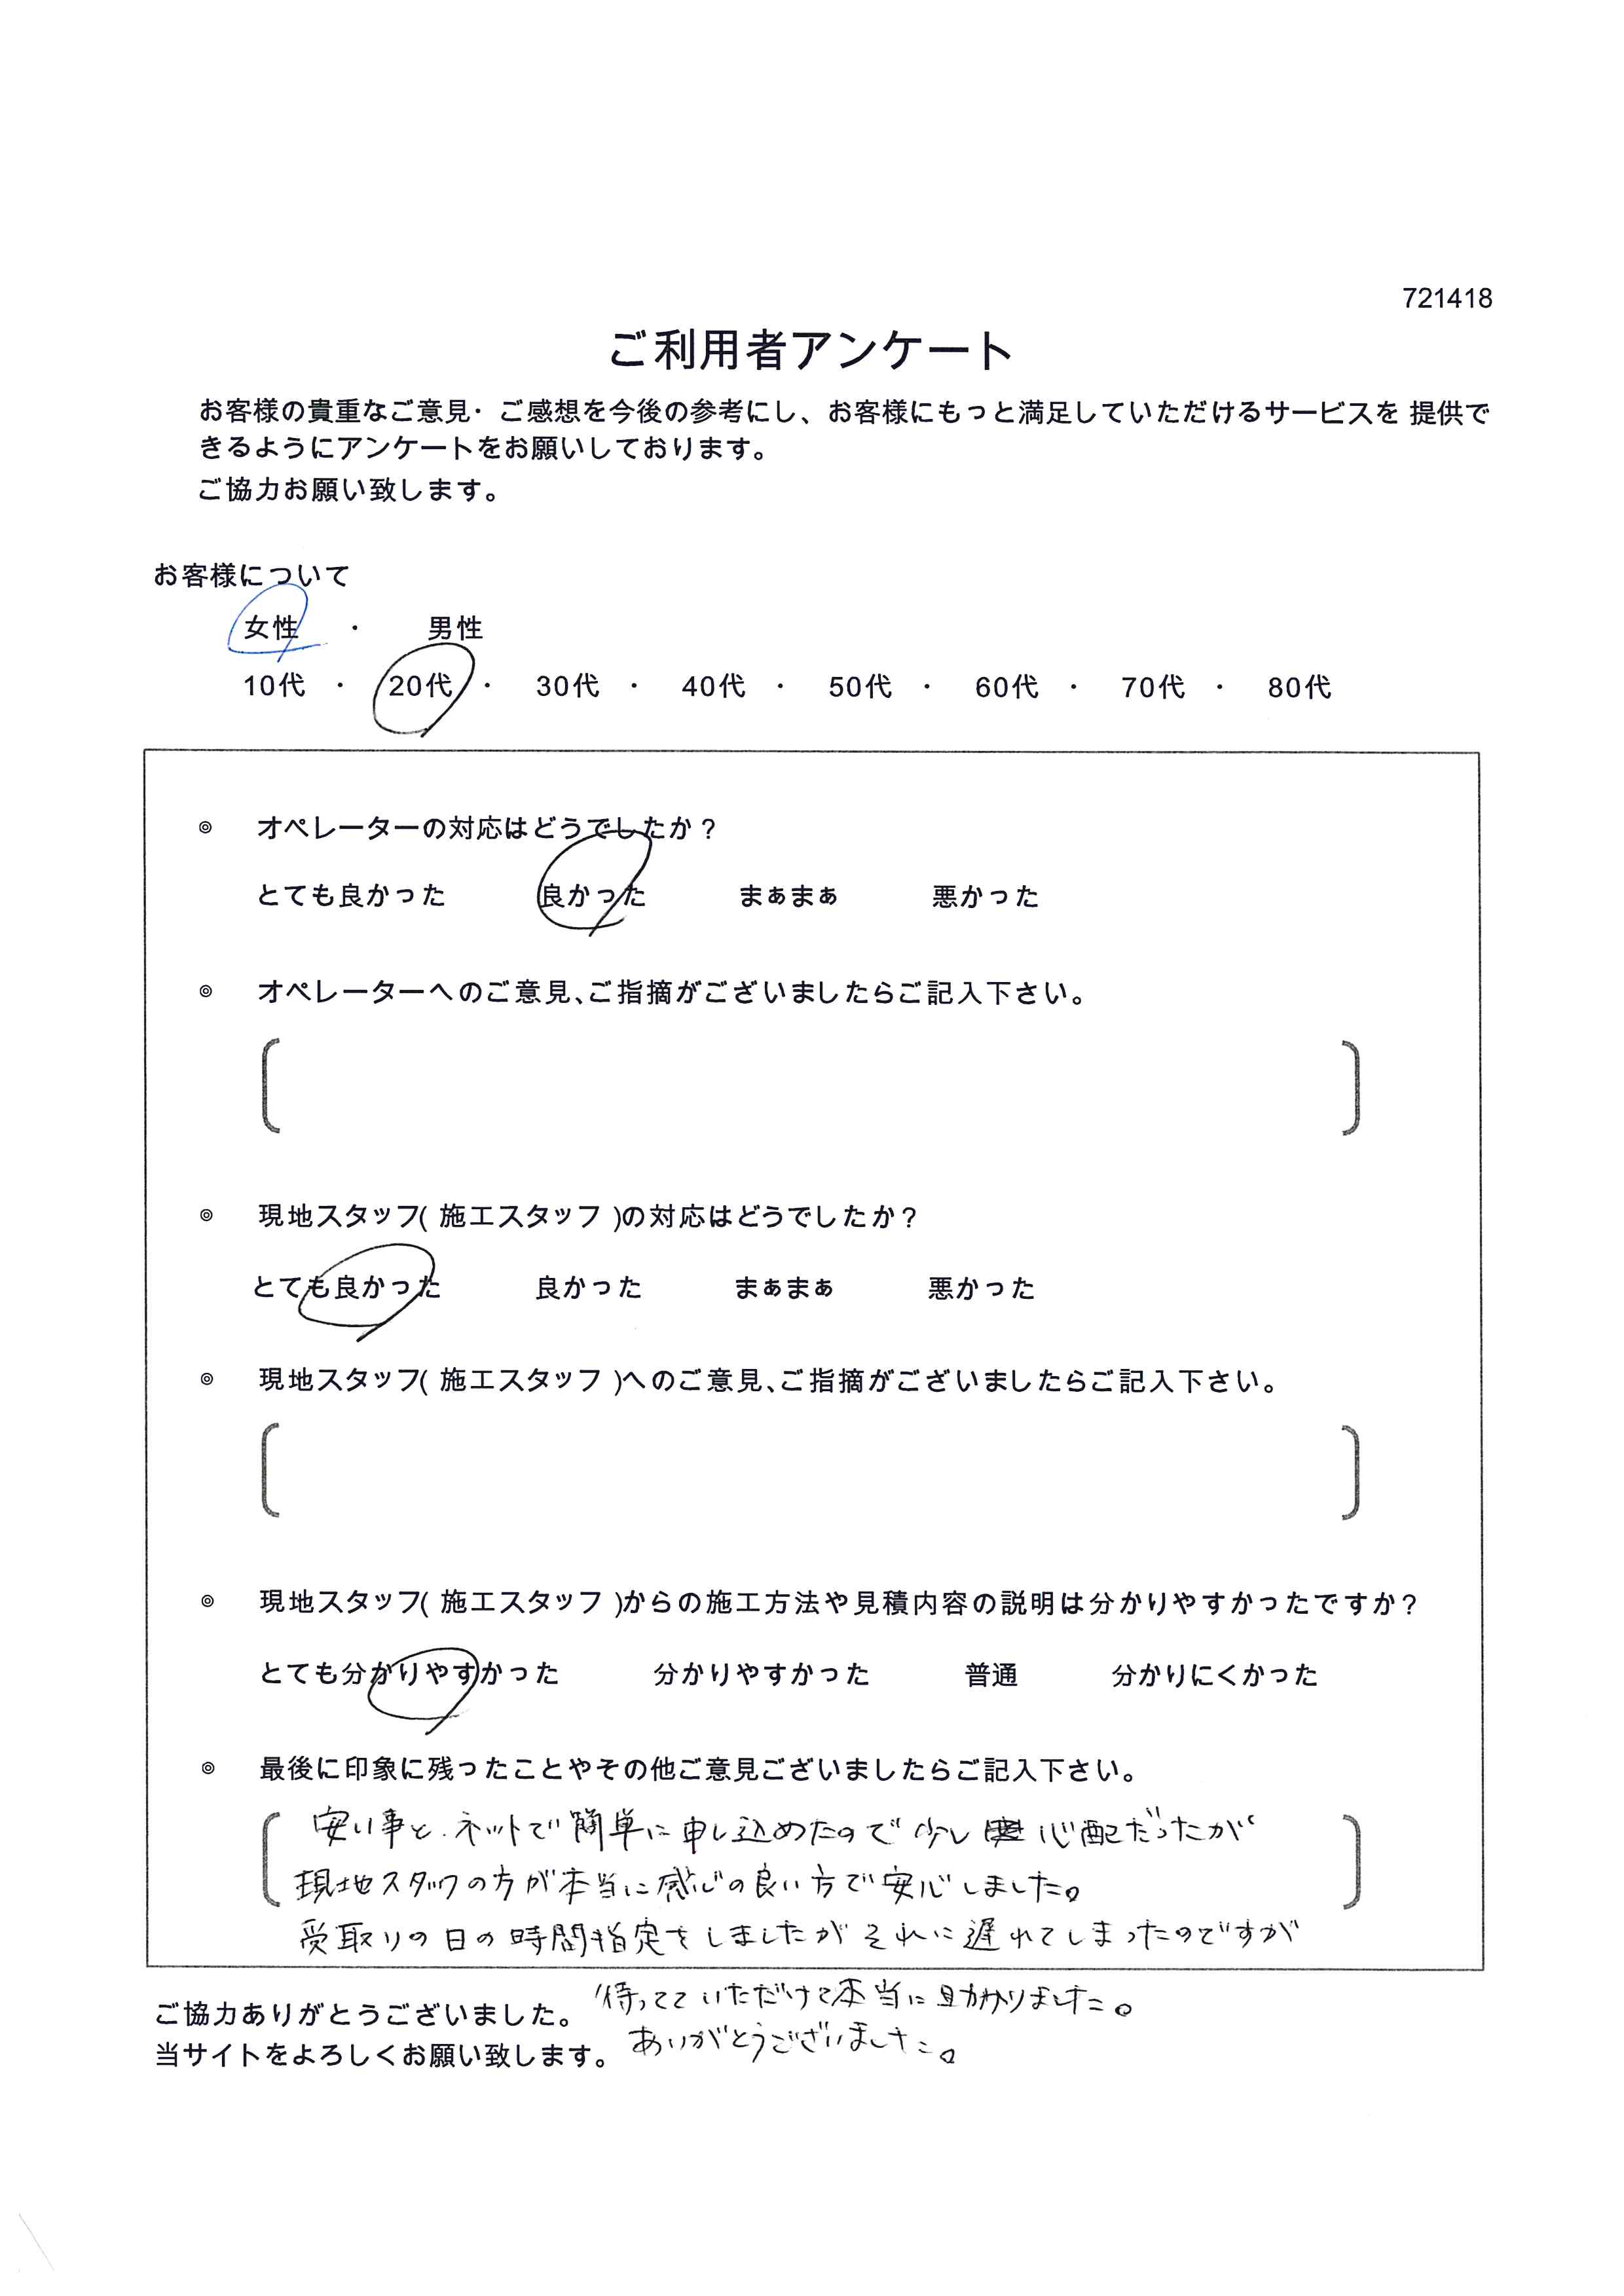 721418
ご利用者アンケート
お客様の貴重なご意見・ご感想を今後の参考にし、お客様にもっと満足していただけるサービスを 提供で
きるようにアンケートをお願いしております。
ご協力お願い致します。
お客様について
女性 ・ 男性
10代 ・ 20代 ・ 30代 ・ 40代 ・ 50代 ・ 60代 ・ 70代 ・ 80代
◎ オペレーターの対応はどうでしたか？
とても良かった 良かった まぁまぁ 悪かった
◎ オペレーターへのご意見、ご指摘がございましたらご記入下さい。
◎ 現地スタッフ( 施工スタッフ )の対応はどうでしたか？
とても良かった 良かった まぁまぁ 悪かった
◎ 現地スタッフ( 施工スタッフ )へのご意見、ご指摘がございましたらご記入下さい。
◎ 現地スタッフ( 施工スタッフ )からの施工方法や見積内容の説明は分かりやすかったですか？
とても分かりやすかった 分かりやすかった 普通 分かりにくかった
◎ 最後に印象に残ったことやその他ご意見ございましたらご記入下さい。
安い事と、ネットで簡単に申し込めたので少し 心配だったが
現地スタッフの方が本当に感じの良い方で安心しました。
受取りの日の時間指定をしましたがそれに遅れてしまったのですが
待ってていただけて本当に助かりました。
ありがとうございました。
ご協力ありがとうございました。
当サイトをよろしくお願い致します。